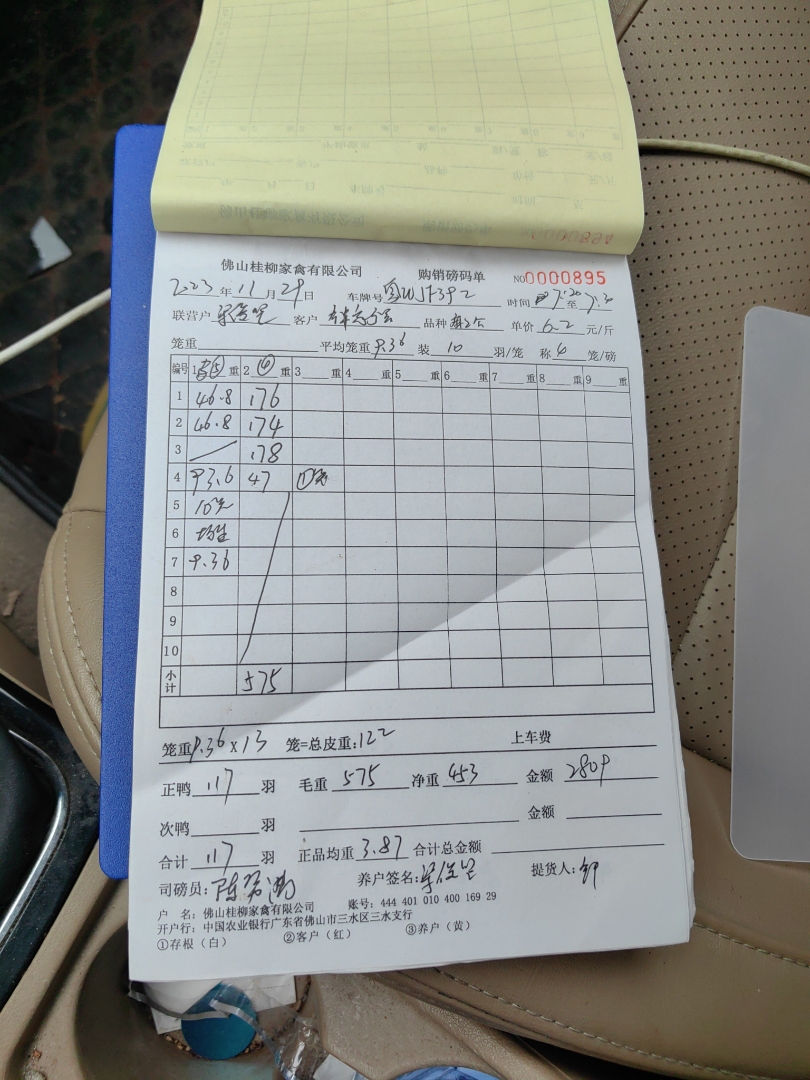 佛山桂柳家禽有限公司 购销磅码单 NO0000895
2023年11月29日 车牌号 时间 至
联营户 客户 品种 单价6.2元/斤
笼重 平均笼重9.36 装10羽/笼 称4笼/磅
编号 1 重 2 ④ 重 3 重 4 重 5 重 6 重 7 重 8 重 9 重
1 46.8 176
2 46.8 174
3 178
4 93.6 47
5
6
7 9.36
8
9
10
小计 575
笼重9.36×13 笼=总皮重:122 上车费
正鸭117羽 毛重575 净重453 金额2809
次鸭 羽 金额
合计117羽 正品均重3.87 合计总金额
司磅员: 养户签名: 提货人:
户 名:佛山桂柳家禽有限公司 账号:444 401 010 400 169 29
开户行:中国农业银行广东省佛山市三水区三水支行
①存根(白) ②客户(红) ③养户(黄)